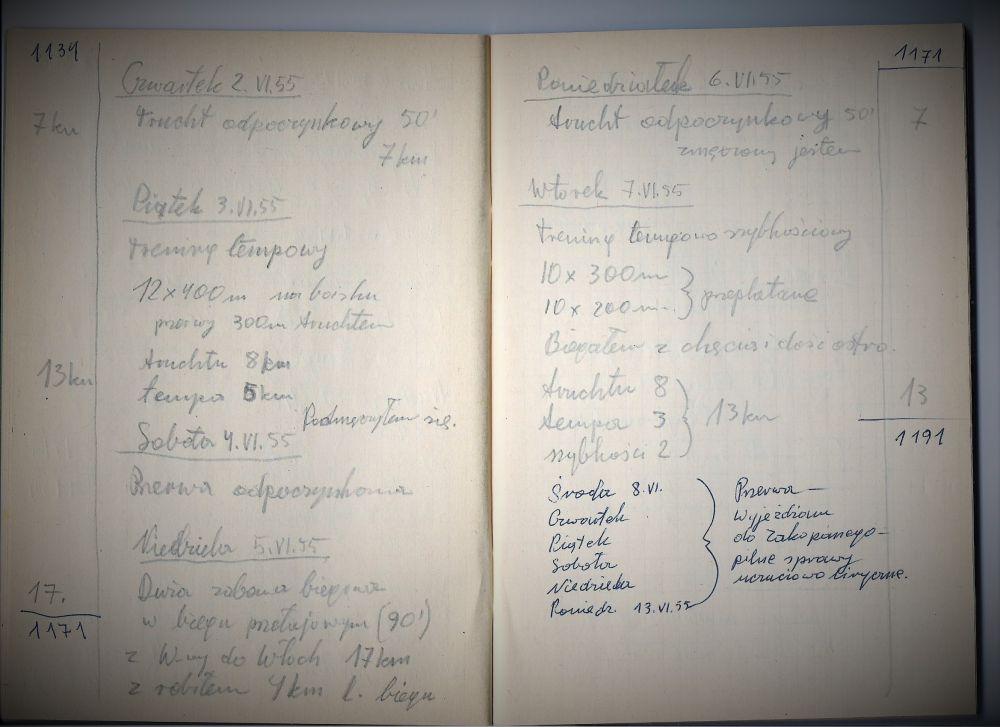 1134
Czwartek 2.VI.55
7km
trucht odpoczynkowy 50'
7km
Piątek 3.VI.55
trening tempowy
12x400m na boisku
przerwy 300m truchtem
truchtu 8km
13km
tempa 5km
Podmęczyłem się.
Sobota 4.VI.55
Przerwa odpoczynkowa
Niedziela 5.VI.55
17.
Duża zabawa biegowa
w biegu przełajowym (90')
1171
z W-wy do Włoch 17km
zrobiłem 4km l. biegu
1171
Poniedziałek 6.VI.55
trucht odpoczynkowy 50'
7
zmęczony jestem
Wtorek 7.VI.55
trening tempowo szybkościowy
10x300m
10x200m
przeplatane
Biegałem z chęcią i dość ostro.
truchtu 8
13
tempa 3
13km
szybkości 2
1191
Środa 8.VI.
Czwartek
Piątek
Sobota
Niedziela
Poniedz. 13.VI.55
Przerwa —
wyjeżdżam
do Zakopanego —
pilne sprawy
uczuciowo liryczne.